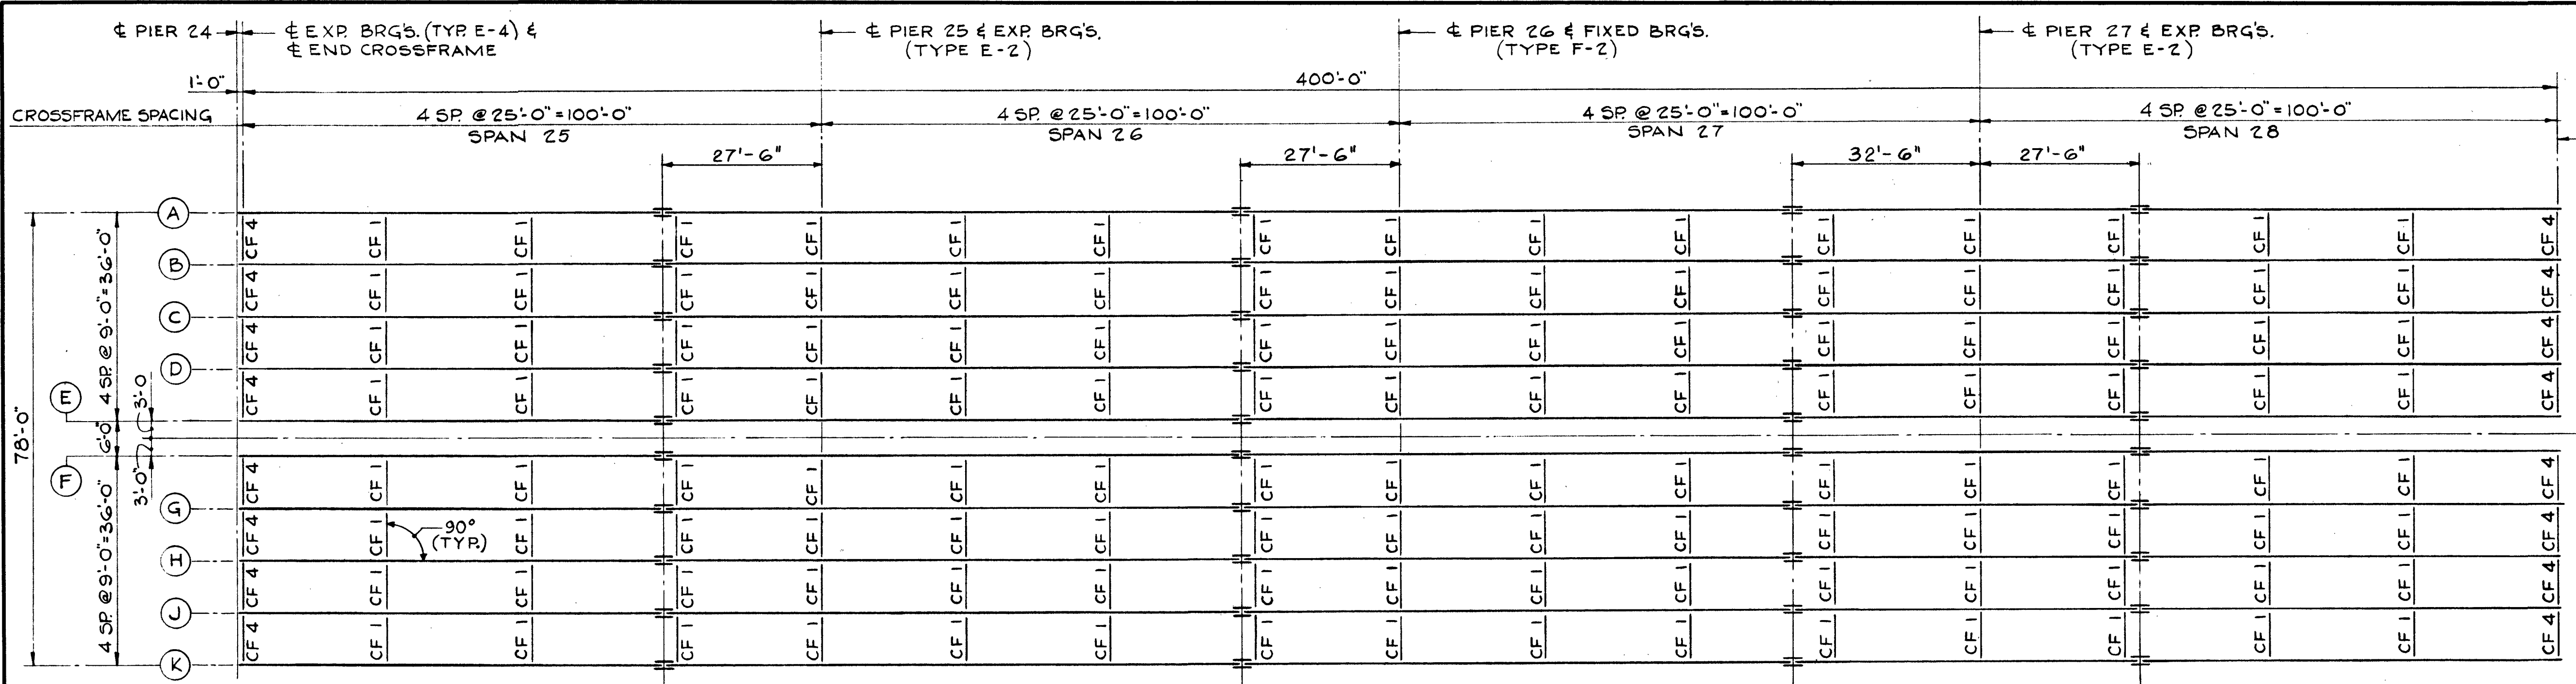 ℄ PIER 24
℄ EXP. BRG'S. (TYP. E-4) &
℄ END CROSSFRAME
℄ PIER 25 & EXP. BRG'S.
(TYPE E-2)
℄ PIER 26 & FIXED BRG'S.
(TYPE F-2)
℄ PIER 27 & EXP. BRG'S.
(TYPE E-2)
1'-0"
400'-0"
CROSSFRAME SPACING
4 SP. @ 25'-0" = 100'-0"
SPAN 25
4 SP. @ 25'-0" = 100'-0"
SPAN 26
4 SP. @ 25'-0" = 100'-0"
SPAN 27
4 SP. @ 25'-0" = 100'-0"
SPAN 28
27'-6"
27'-6"
32'-6"
27'-6"
A
CF 4 CF 1 CF 1 CF 1 CF 1 CF 1 CF 1 CF 1 CF 1 CF 1 CF 1 CF 1 CF 1 CF 1 CF 1 CF 1 CF 4
B
CF 4 CF 1 CF 1 CF 1 CF 1 CF 1 CF 1 CF 1 CF 1 CF 1 CF 1 CF 1 CF 1 CF 1 CF 1 CF 1 CF 4
C
CF 4 CF 1 CF 1 CF 1 CF 1 CF 1 CF 1 CF 1 CF 1 CF 1 CF 1 CF 1 CF 1 CF 1 CF 1 CF 1 CF 4
D
CF 4 CF 1 CF 1 CF 1 CF 1 CF 1 CF 1 CF 1 CF 1 CF 1 CF 1 CF 1 CF 1 CF 1 CF 1 CF 1 CF 4
E
4 SP. @ 9'-0" = 36'-0"
3'-0
78'-0"
6'-0"
3'-0"
F
CF 4 CF 1 CF 1 CF 1 CF 1 CF 1 CF 1 CF 1 CF 1 CF 1 CF 1 CF 1 CF 1 CF 1 CF 1 CF 1 CF 4
G
CF 4 CF 1 CF 1 CF 1 CF 1 CF 1 CF 1 CF 1 CF 1 CF 1 CF 1 CF 1 CF 1 CF 1 CF 1 CF 1 CF 4
90°
(TYP.)
H
CF 4 CF 1 CF 1 CF 1 CF 1 CF 1 CF 1 CF 1 CF 1 CF 1 CF 1 CF 1 CF 1 CF 1 CF 1 CF 1 CF 4
J
CF 4 CF 1 CF 1 CF 1 CF 1 CF 1 CF 1 CF 1 CF 1 CF 1 CF 1 CF 1 CF 1 CF 1 CF 1 CF 1 CF 4
K
4 SP. @ 9'-0" = 36'-0"